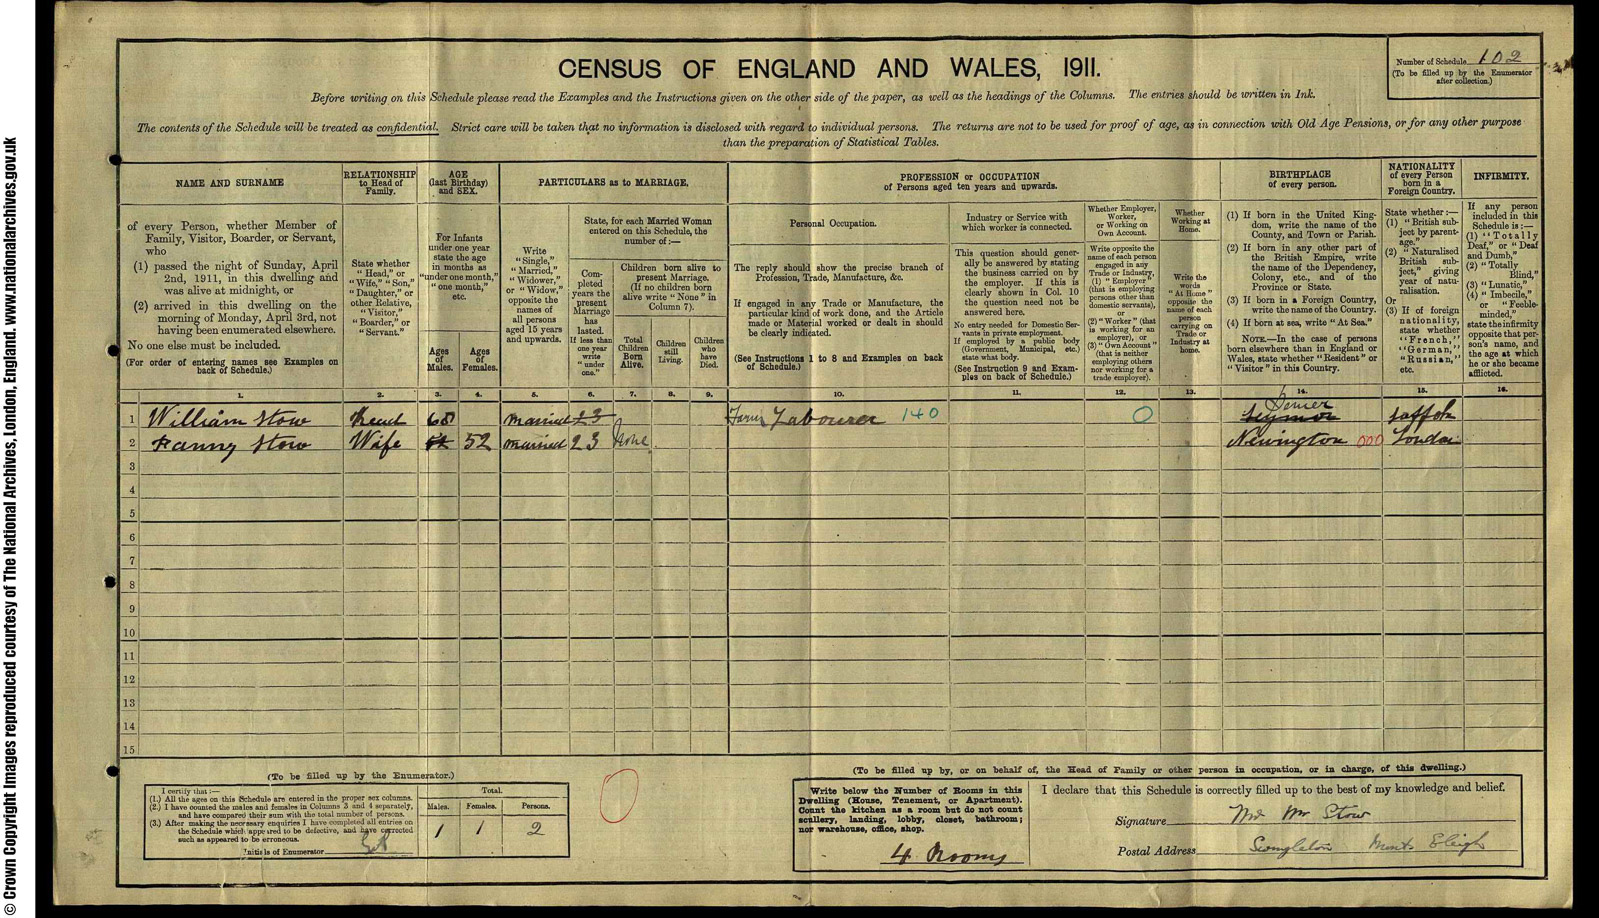 CENSUS OF ENGLAND AND WALES, 1911.
Number of Schedule 102
(To be filled up by the Enumerator
after collection.)
Before writing on this Schedule please read the Examples and the Instructions given on the other side of the paper, as well as the headings of the Columns. The entries should be written in Ink.
The contents of the Schedule will be treated as confidential. Strict care will be taken that no information is disclosed with regard to individual persons. The returns are not to be used for proof of age, as in connection with Old Age Pensions, or for any other purpose
than the preparation of Statistical Tables.
NAME AND SURNAME
of every Person, whether Member of
Family, Visitor, Boarder, or Servant,
who
(1) passed the night of Sunday, April
2nd, 1911, in this dwelling and
was alive at midnight, or
(2) arrived in this dwelling on the
morning of Monday, April 3rd, not
having been enumerated elsewhere.
No one else must be included.
(For order of entering names see Examples on
back of Schedule.)
RELATIONSHIP
to Head of
Family.
State whether
"Head," or
"Wife," "Son,"
"Daughter," or
other Relative,
"Visitor,"
"Boarder," or
"Servant."
AGE
(last Birthday)
and SEX.
For Infants
under one year
state the age
in months as
"under one month,"
"one month,"
etc.
Ages
of
Males.
Ages
of
Females.
PARTICULARS as to MARRIAGE.
Write
"Single,"
"Married,"
"Widower,"
or "Widow,"
opposite the
names of
all persons
aged 15 years
and upwards.
State, for each Married Woman
entered on this Schedule, the
number of:—
Com-
pleted
years the
present
Marriage
has
lasted.
If less than
one year
write
"under
one."
Children born alive to
present Marriage.
(If no children born
alive write "None" in
Column 7).
Total
Children
Born
Alive.
Children
still
Living.
Children
who
have
Died.
PROFESSION or OCCUPATION
of Persons aged ten years and upwards.
Personal Occupation.
The reply should show the precise branch of
Profession, Trade, Manufacture, &c.
If engaged in any Trade or Manufacture, the
particular kind of work done, and the Article
made or Material worked or dealt in should
be clearly indicated.
(See Instructions 1 to 8 and Examples on back
of Schedule.)
Industry or Service with
which worker is connected.
This question should gener-
ally be answered by stating
the business carried on by
the employer. If this is
clearly shown in Col. 10
the question need not be
answered here.
No entry needed for Domestic Ser-
vants in private employment.
If employed by a public body
(Government, Municipal, etc.)
state what body.
(See Instruction 9 and Exam-
ples on back of Schedule.)
Whether Employer,
Worker,
or Working on
Own Account.
Write opposite the
name of each person
engaged in any
Trade or Industry,
(1) "Employer"
(that is employing
persons other than
domestic servants),
or
(2) "Worker" (that
is working for an
employer), or
(3) "Own Account"
(that is neither
employing others
nor working for a
trade employer).
Whether
Working at
Home.
Write the
words
"At Home"
opposite the
name of each
person
carrying on
Trade or
Industry at
home.
BIRTHPLACE
of every person.
(1) If born in the United King-
dom, write the name of the
County, and Town or Parish.
(2) If born in any other part of
the British Empire, write
the name of the Dependency,
Colony, etc., and of the
Province or State.
(3) If born in a Foreign Country,
write the name of the Country.
(4) If born at sea, write "At Sea."
NOTE.—In the case of persons
born elsewhere than in England or
Wales, state whether "Resident" or
"Visitor" in this Country.
NATIONALITY
of every Person
born in a
Foreign Country.
State whether:—
(1) "British sub-
ject by parent-
age."
(2) "Naturalised
British sub-
ject," giving
year of natu-
ralisation.
Or
(3) If of foreign
nationality,
state whether
"French,"
"German,"
"Russian,"
etc.
INFIRMITY.
If any person
included in this
Schedule is:—
(1) "Totally
Deaf," or "Deaf
and Dumb,"
(2) "Totally
Blind,"
(3) "Lunatic,"
(4) "Imbecile,"
or "Feeble-
minded,"
state the infirmity
opposite that per-
son's name, and
the age at which
he or she became
afflicted.
1. 2. 3. 4. 5. 6. 7. 8. 9. 10. 11. 12. 13. 14. 15. 16.
1 William Stow Head 68 married 23 Farm Labourer 140 0 Suffolk
2 Fanny Stow Wife 52 married 23 None Newington 000 London
3
4
5
6
7
8
9
10
11
12
13
14
15
(To be filled up by the Enumerator.)
I certify that:—
(1.) All the ages on this Schedule are entered in the proper sex columns.
(2.) I have counted the males and females in Columns 3 and 4 separately,
and have compared their sum with the total number of persons.
(3.) After making the necessary enquiries I have completed all entries on
the Schedule which appeared to be defective, and have corrected
such as appeared to be erroneous.
Initials of Enumerator
Total.
Males. Females. Persons.
1 1 2
0
(To be filled up by, or on behalf of, the Head of Family or other person in occupation, or in charge, of this dwelling.)
Write below the Number of Rooms in this
Dwelling (House, Tenement, or Apartment).
Count the kitchen as a room but do not count
scullery, landing, lobby, closet, bathroom;
nor warehouse, office, shop.
4 Rooms
I declare that this Schedule is correctly filled up to the best of my knowledge and belief.
Signature Mr Stow
Postal Address Swingleton Monks Eleigh
© Crown Copyright Images reproduced courtesy of The National Archives, London, England. www.nationalarchives.gov.uk